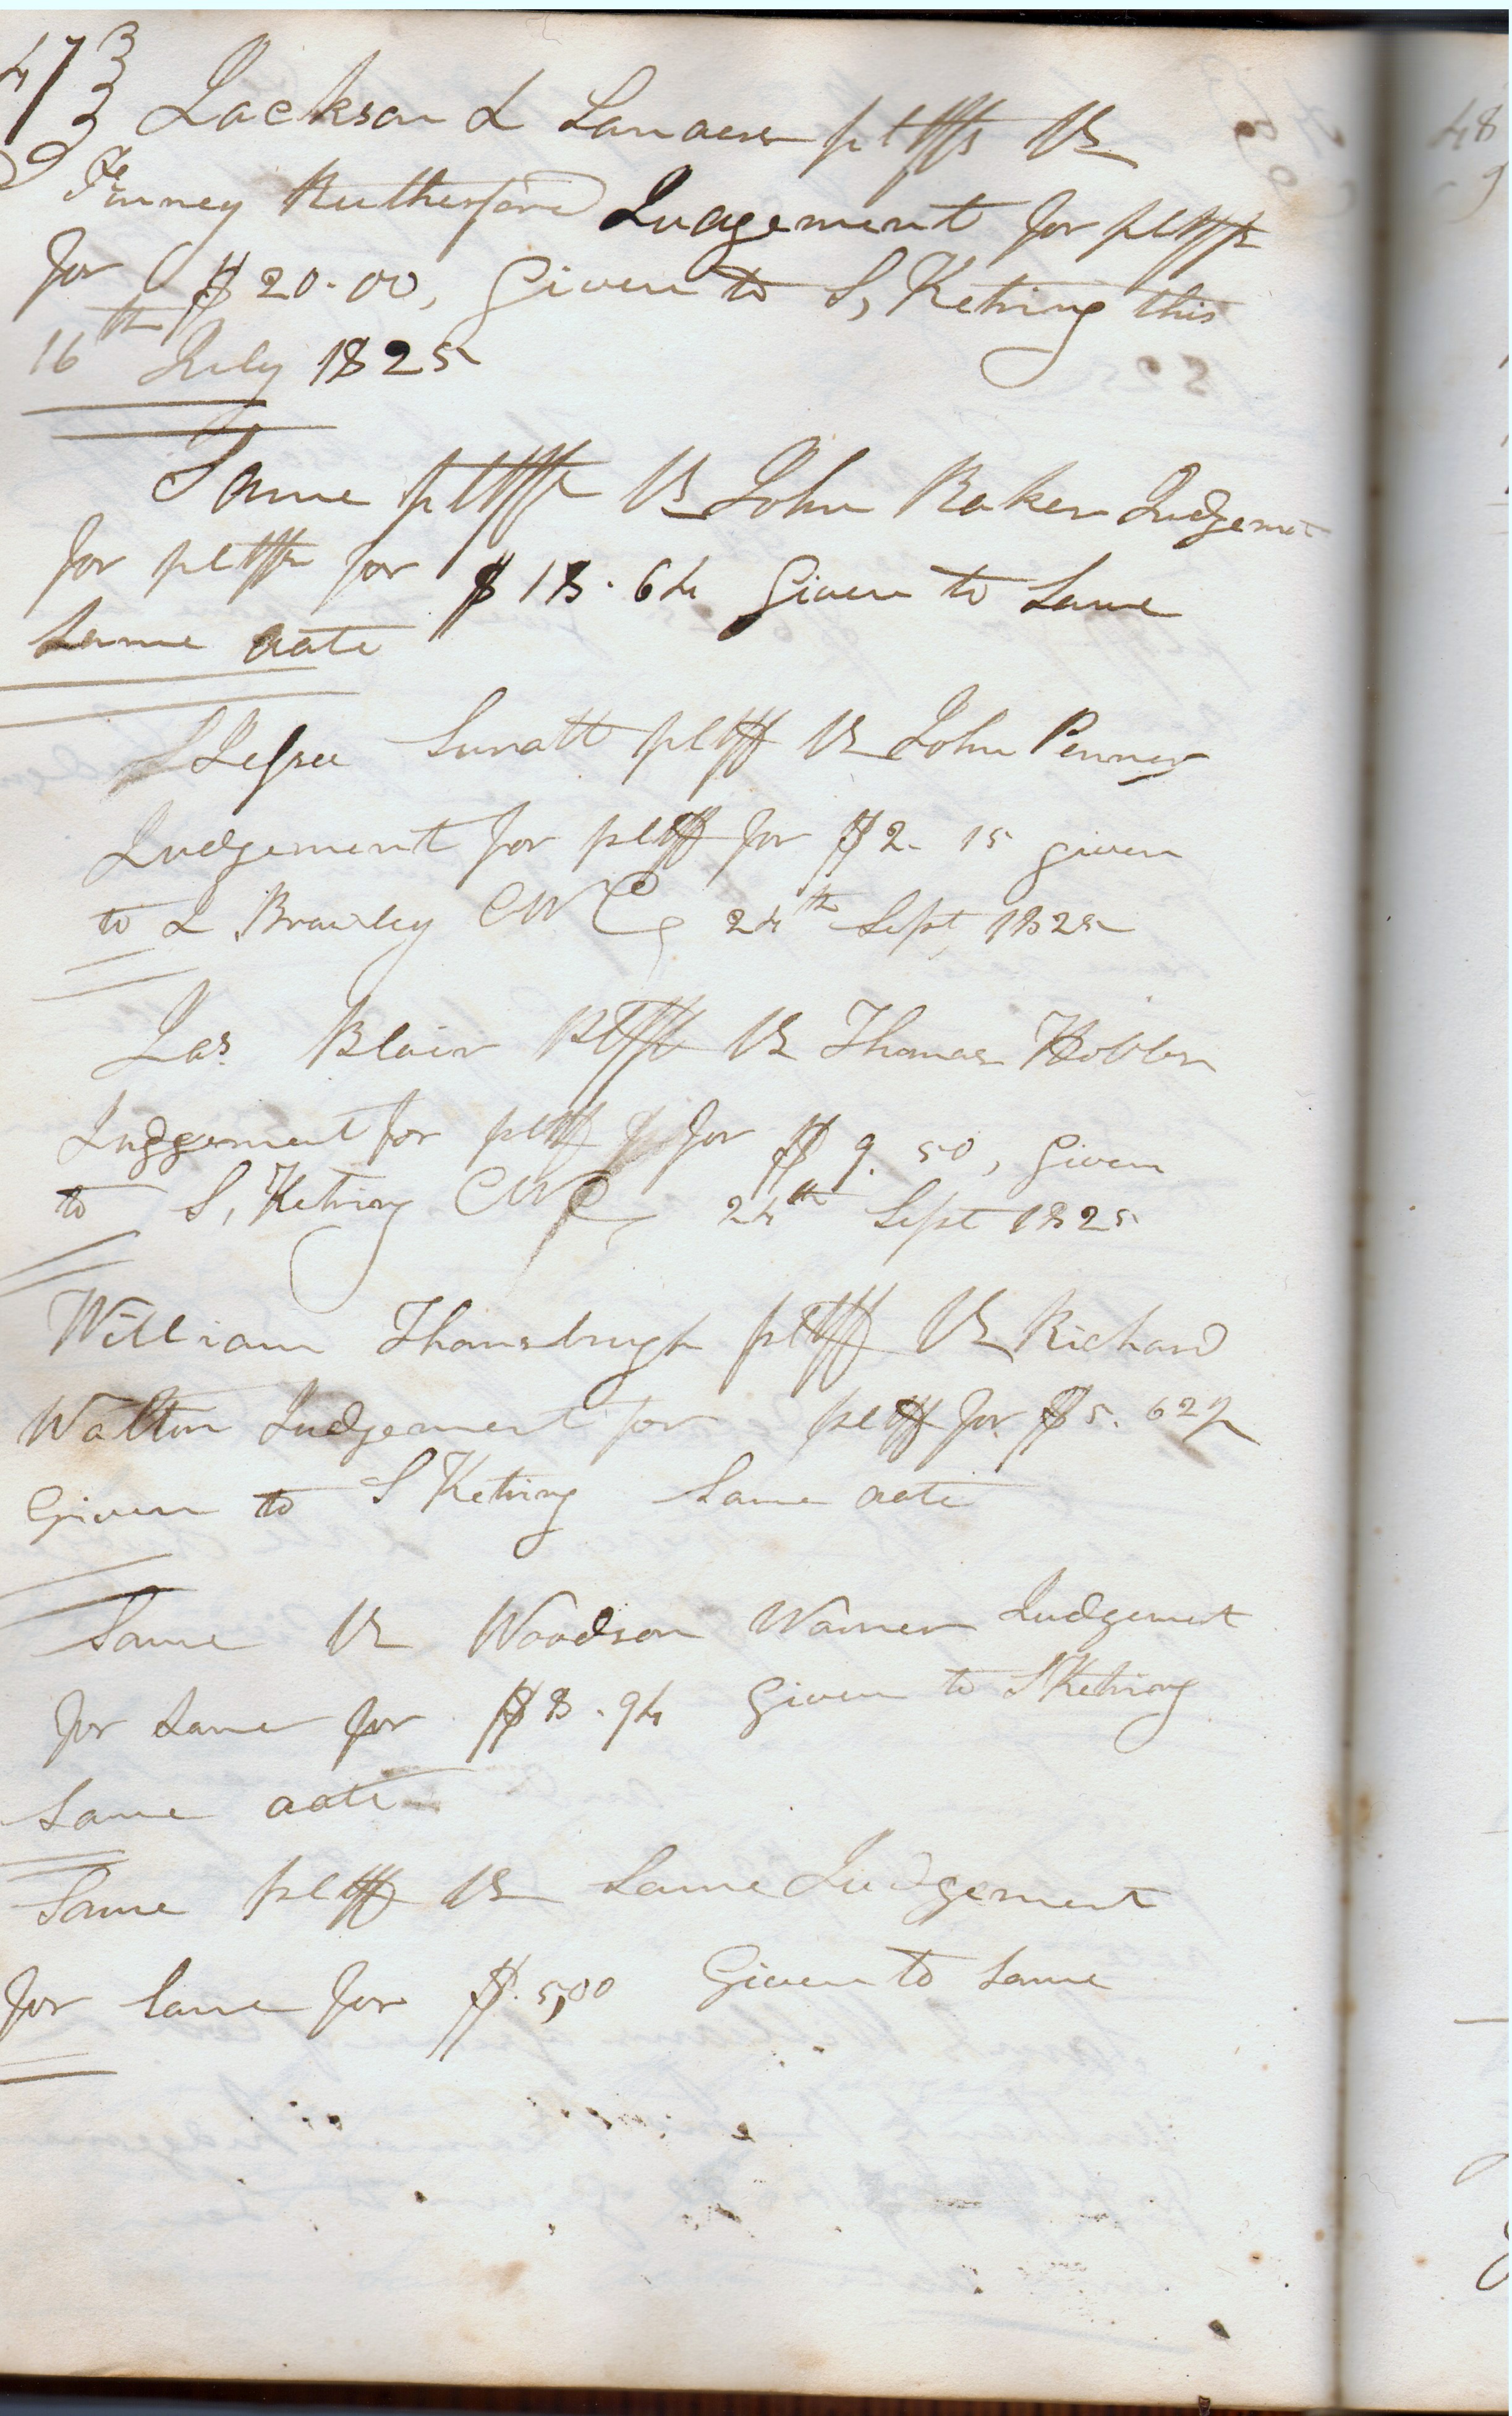 47
Jackson & Lanaer pltffs vs
Finney Rutherford Judgement for pltffs
for $20.00, Given to S, Ketring this
16th July 1825
Same pltffs vs John Baker Judgement
for pltffs for $18.64 Given to Same
Same date
Jesse Surratt pltff vs John Penner
Judgement for pltff for $2.15 given
to L Brawley 24th Sept 1825
Jas Blair Pltff vs Thomas Hobbs
Judgement for pltff for $9.50, Given
to S, Ketring 24th Sept 1825
William Thornsbrugh pltff vs Richard
Walton Judgement for pltff for $5.62½
Given to S Ketring Same date
Same vs Woodson Warner Judgement
for Same for $8.94 Given to S Ketring
Same date
Same pltff vs Same Judgement
for Same for $5,00 Given to Same
48